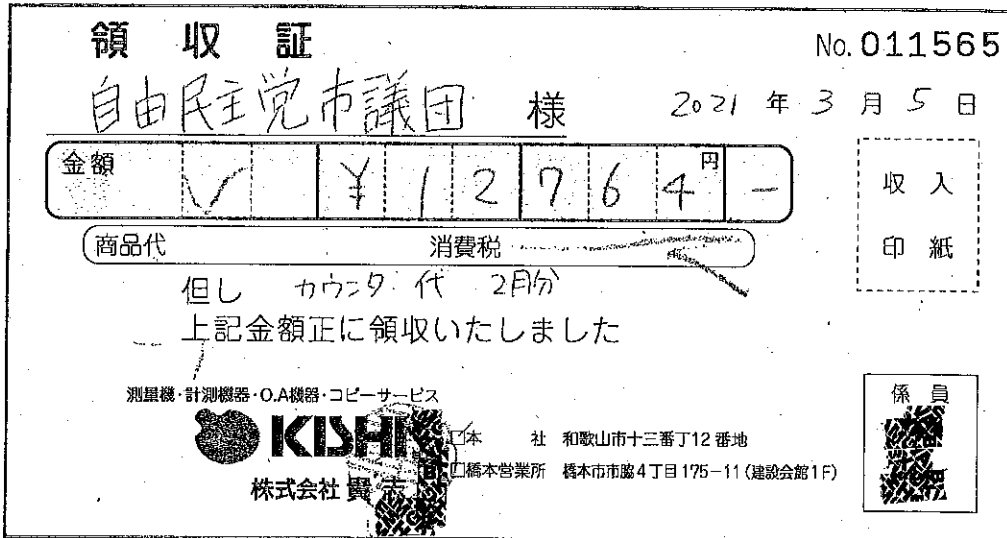 領収証
No. 011565
自由民主党市議団 様
2021 年 3 月 5 日
金額 ¥12764円-
収入
印紙
商品代 消費税
但し カウンタ代 2月分
上記金額正に領収いたしました
測量機・計測機器・O.A機器・コピーサービス
KISHI
株式会社 賢志
□本 社 和歌山市十三番丁12番地
□橋本営業所 橋本市市脇4丁目175-11(建設会館1F)
係員